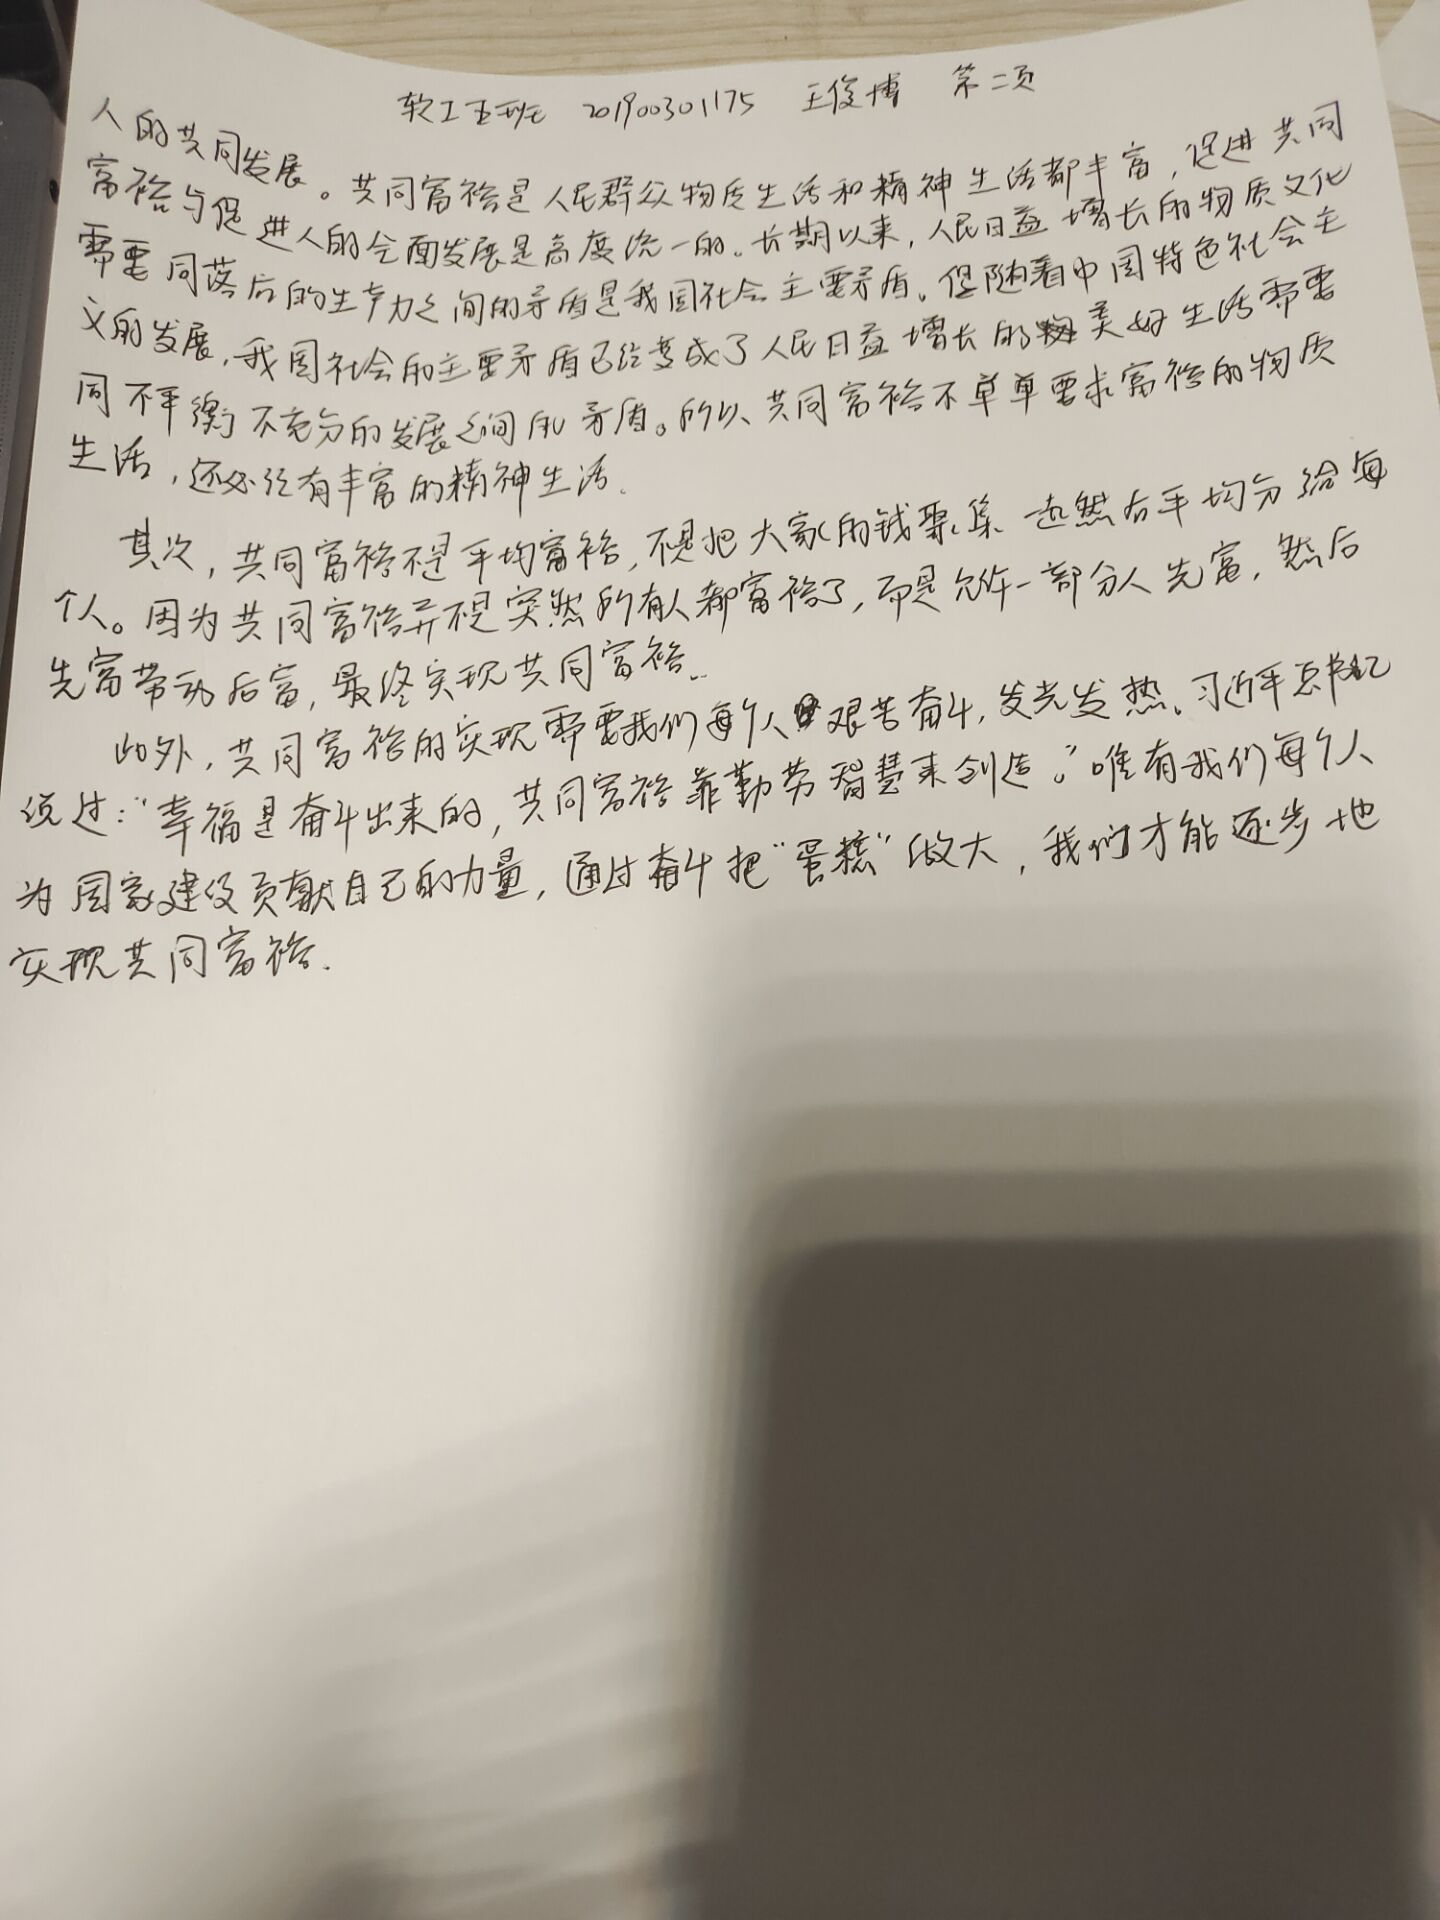 软工五班 201900301175 王俊博 第二页
人的共同发展。共同富裕是人民群众物质生活和精神生活都丰富，促进共同
富裕与促进人的全面发展是高度统一的。长期以来，人民日益增长的物质文化
需要同落后的生产力之间的矛盾是我国社会主要矛盾。但随着中国特色社会主
义的发展，我国社会的主要矛盾已经变成了人民日益增长的美好生活需要
同不平衡不充分的发展之间的矛盾。所以、共同富裕不单单要求富裕的物质
生活，还必须有丰富的精神生活.
其次，共同富裕不是平均富裕，不是把大家的钱聚集一起然后平均分给每
个人。因为共同富裕并不是突然所有人都富裕了，而是允许一部分人先富，然后
先富带动后富，最终实现共同富裕..
此外，共同富裕的实现需要我们每个人艰苦奋斗，发光发热。习近平总书记
说过：“幸福是奋斗出来的，共同富裕靠勤劳智慧来创造。”唯有我们每个人
为国家建设贡献自己的力量，通过奋斗把“蛋糕”做大，我们才能逐步地
实现共同富裕.